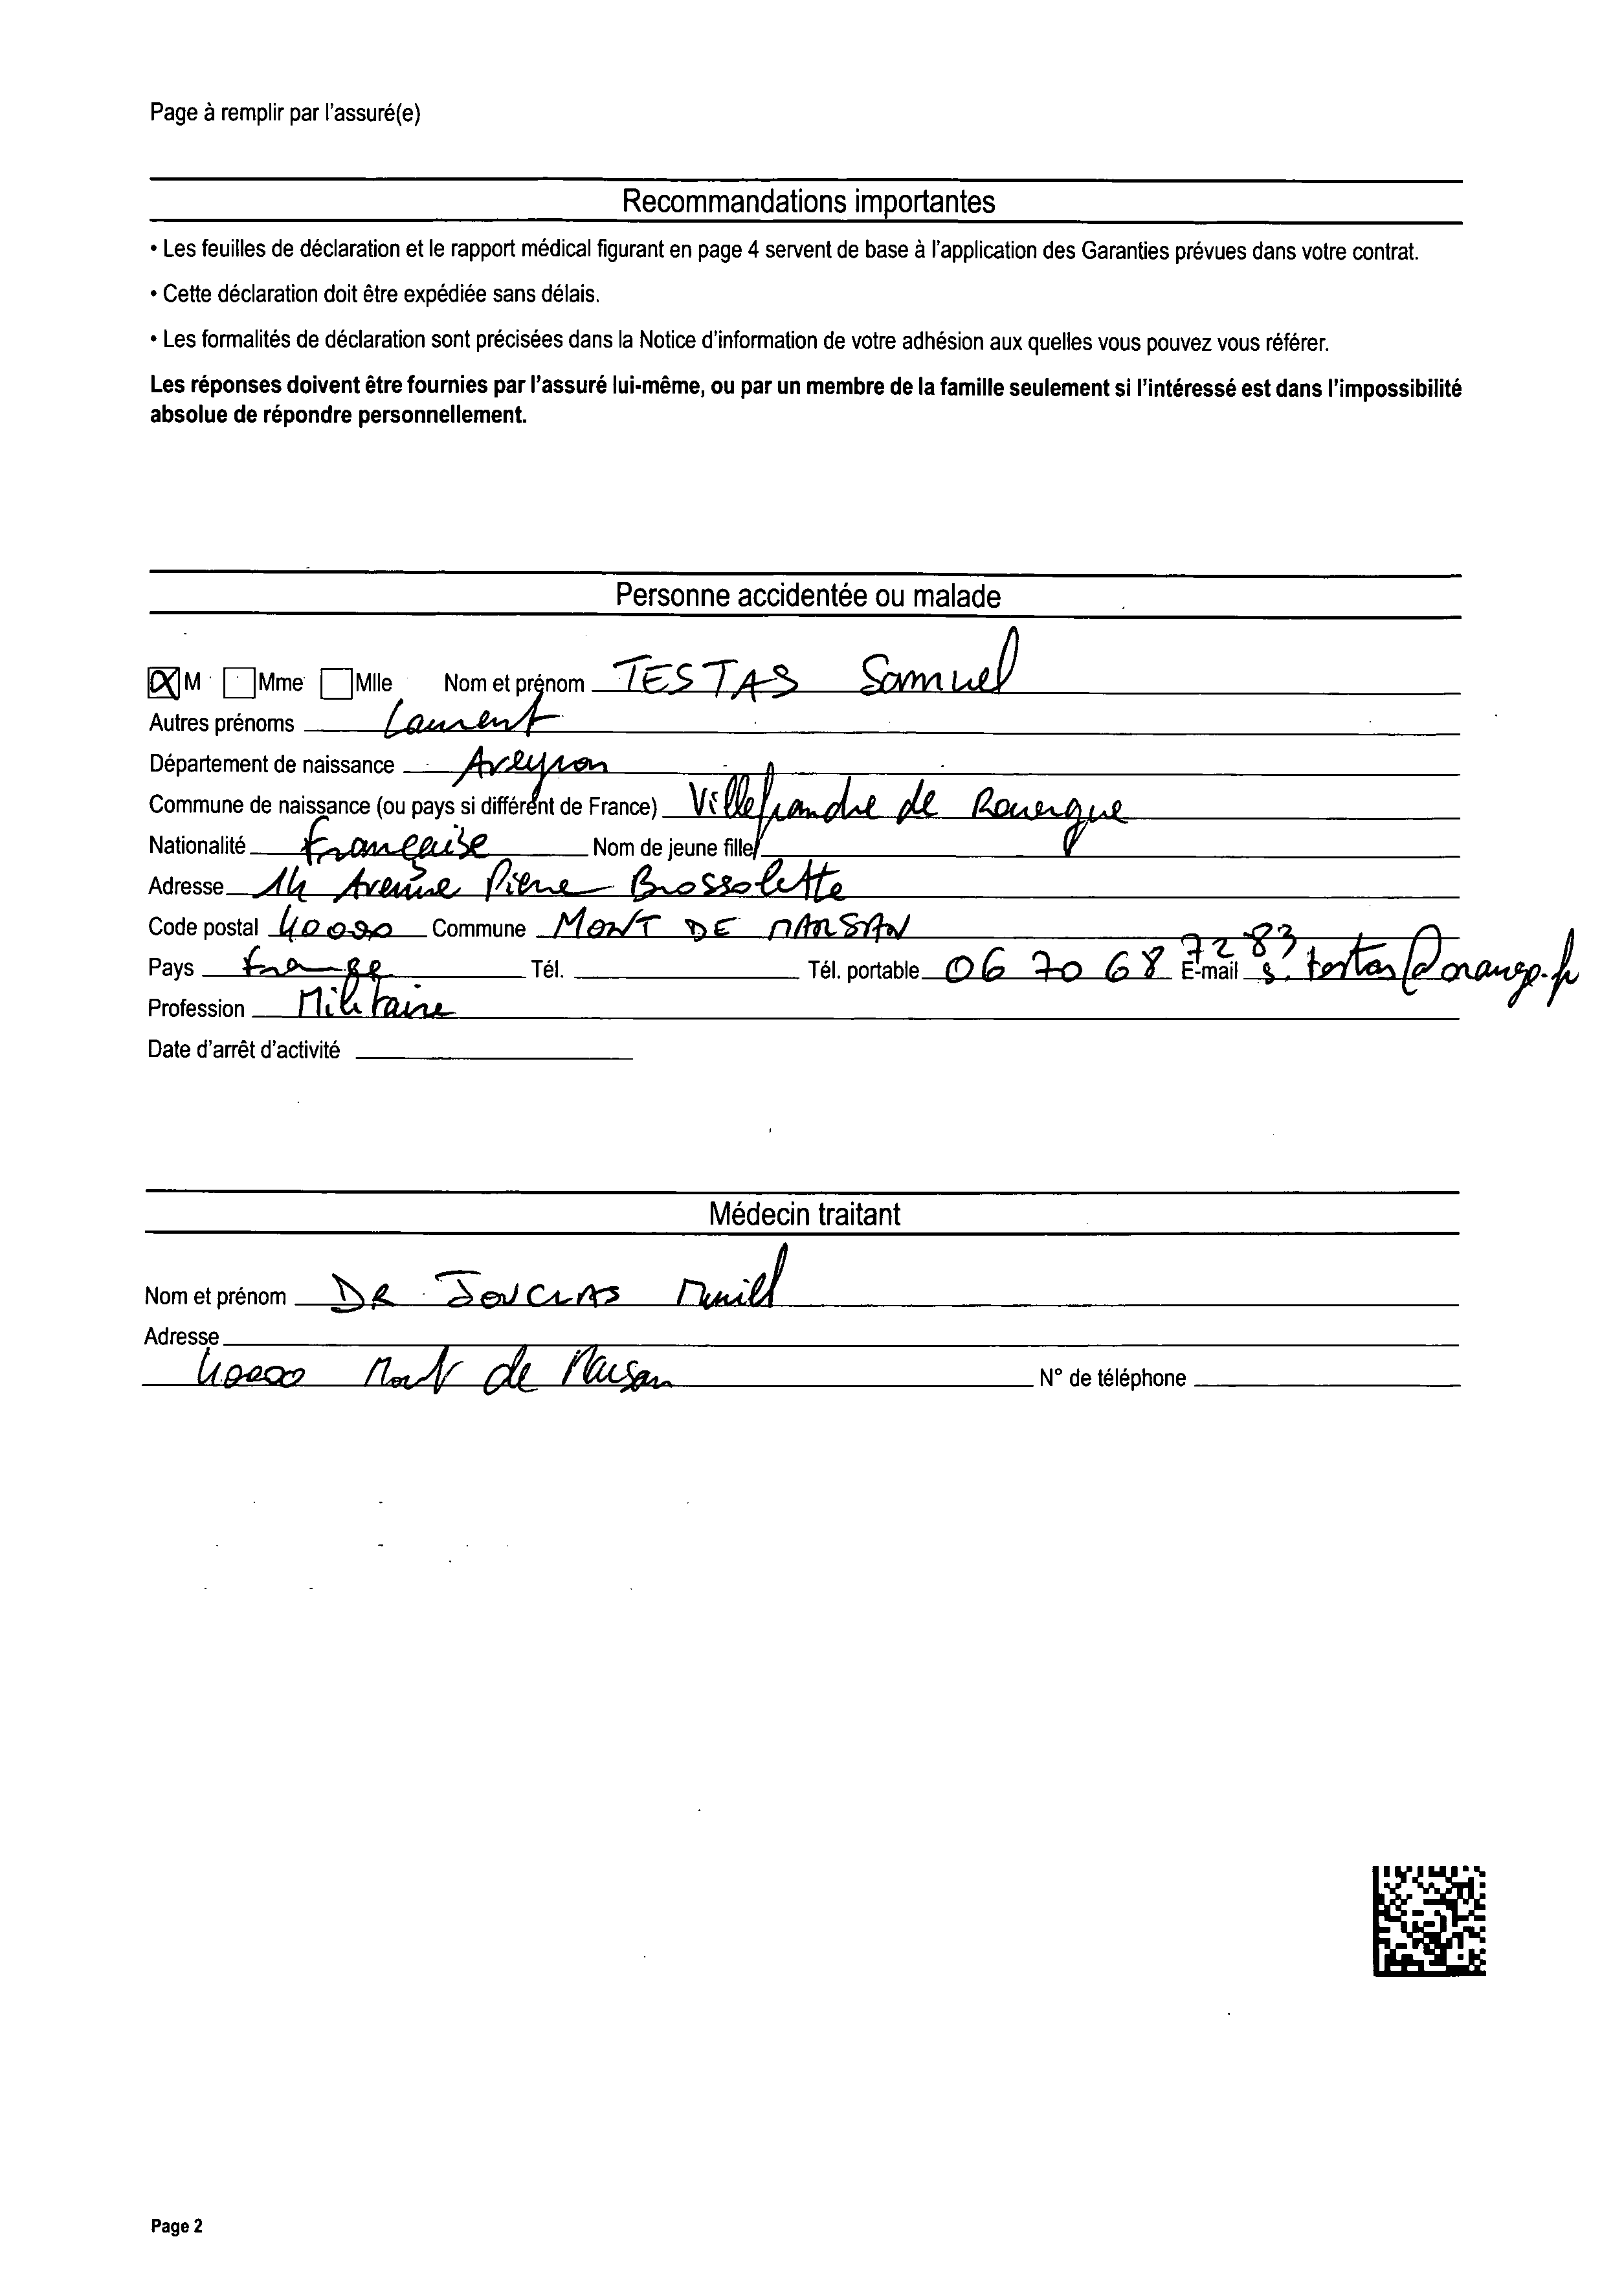 Page à remplir par l'assuré(e)
Recommandations importantes
• Les feuilles de déclaration et le rapport médical figurant en page 4 servent de base à l'application des Garanties prévues dans votre contrat.
• Cette déclaration doit être expédiée sans délais.
• Les formalités de déclaration sont précisées dans la Notice d'information de votre adhésion aux quelles vous pouvez vous référer.
Les réponses doivent être fournies par l'assuré lui-même, ou par un membre de la famille seulement si l'intéressé est dans l'impossibilité
absolue de répondre personnellement.
Personne accidentée ou malade
M Mme Mlle Nom et prénom TESTAS Samuel
Autres prénoms Laurent
Département de naissance Aveyron
Commune de naissance (ou pays si différent de France) Villefranche de Rouergue
Nationalité Française Nom de jeune fille
Adresse 14 Avenue Pierre Brossolette
Code postal 40000 Commune MONT DE MARSAN
Pays France Tél. Tél. portable 06 70 68 72 83 E-mail s.testas@orange.fr
Profession Militaire
Date d'arrêt d'activité
Médecin traitant
Nom et prénom DR JOUCLAS
Adresse
40000 Mont de Marsan N° de téléphone
Page 2